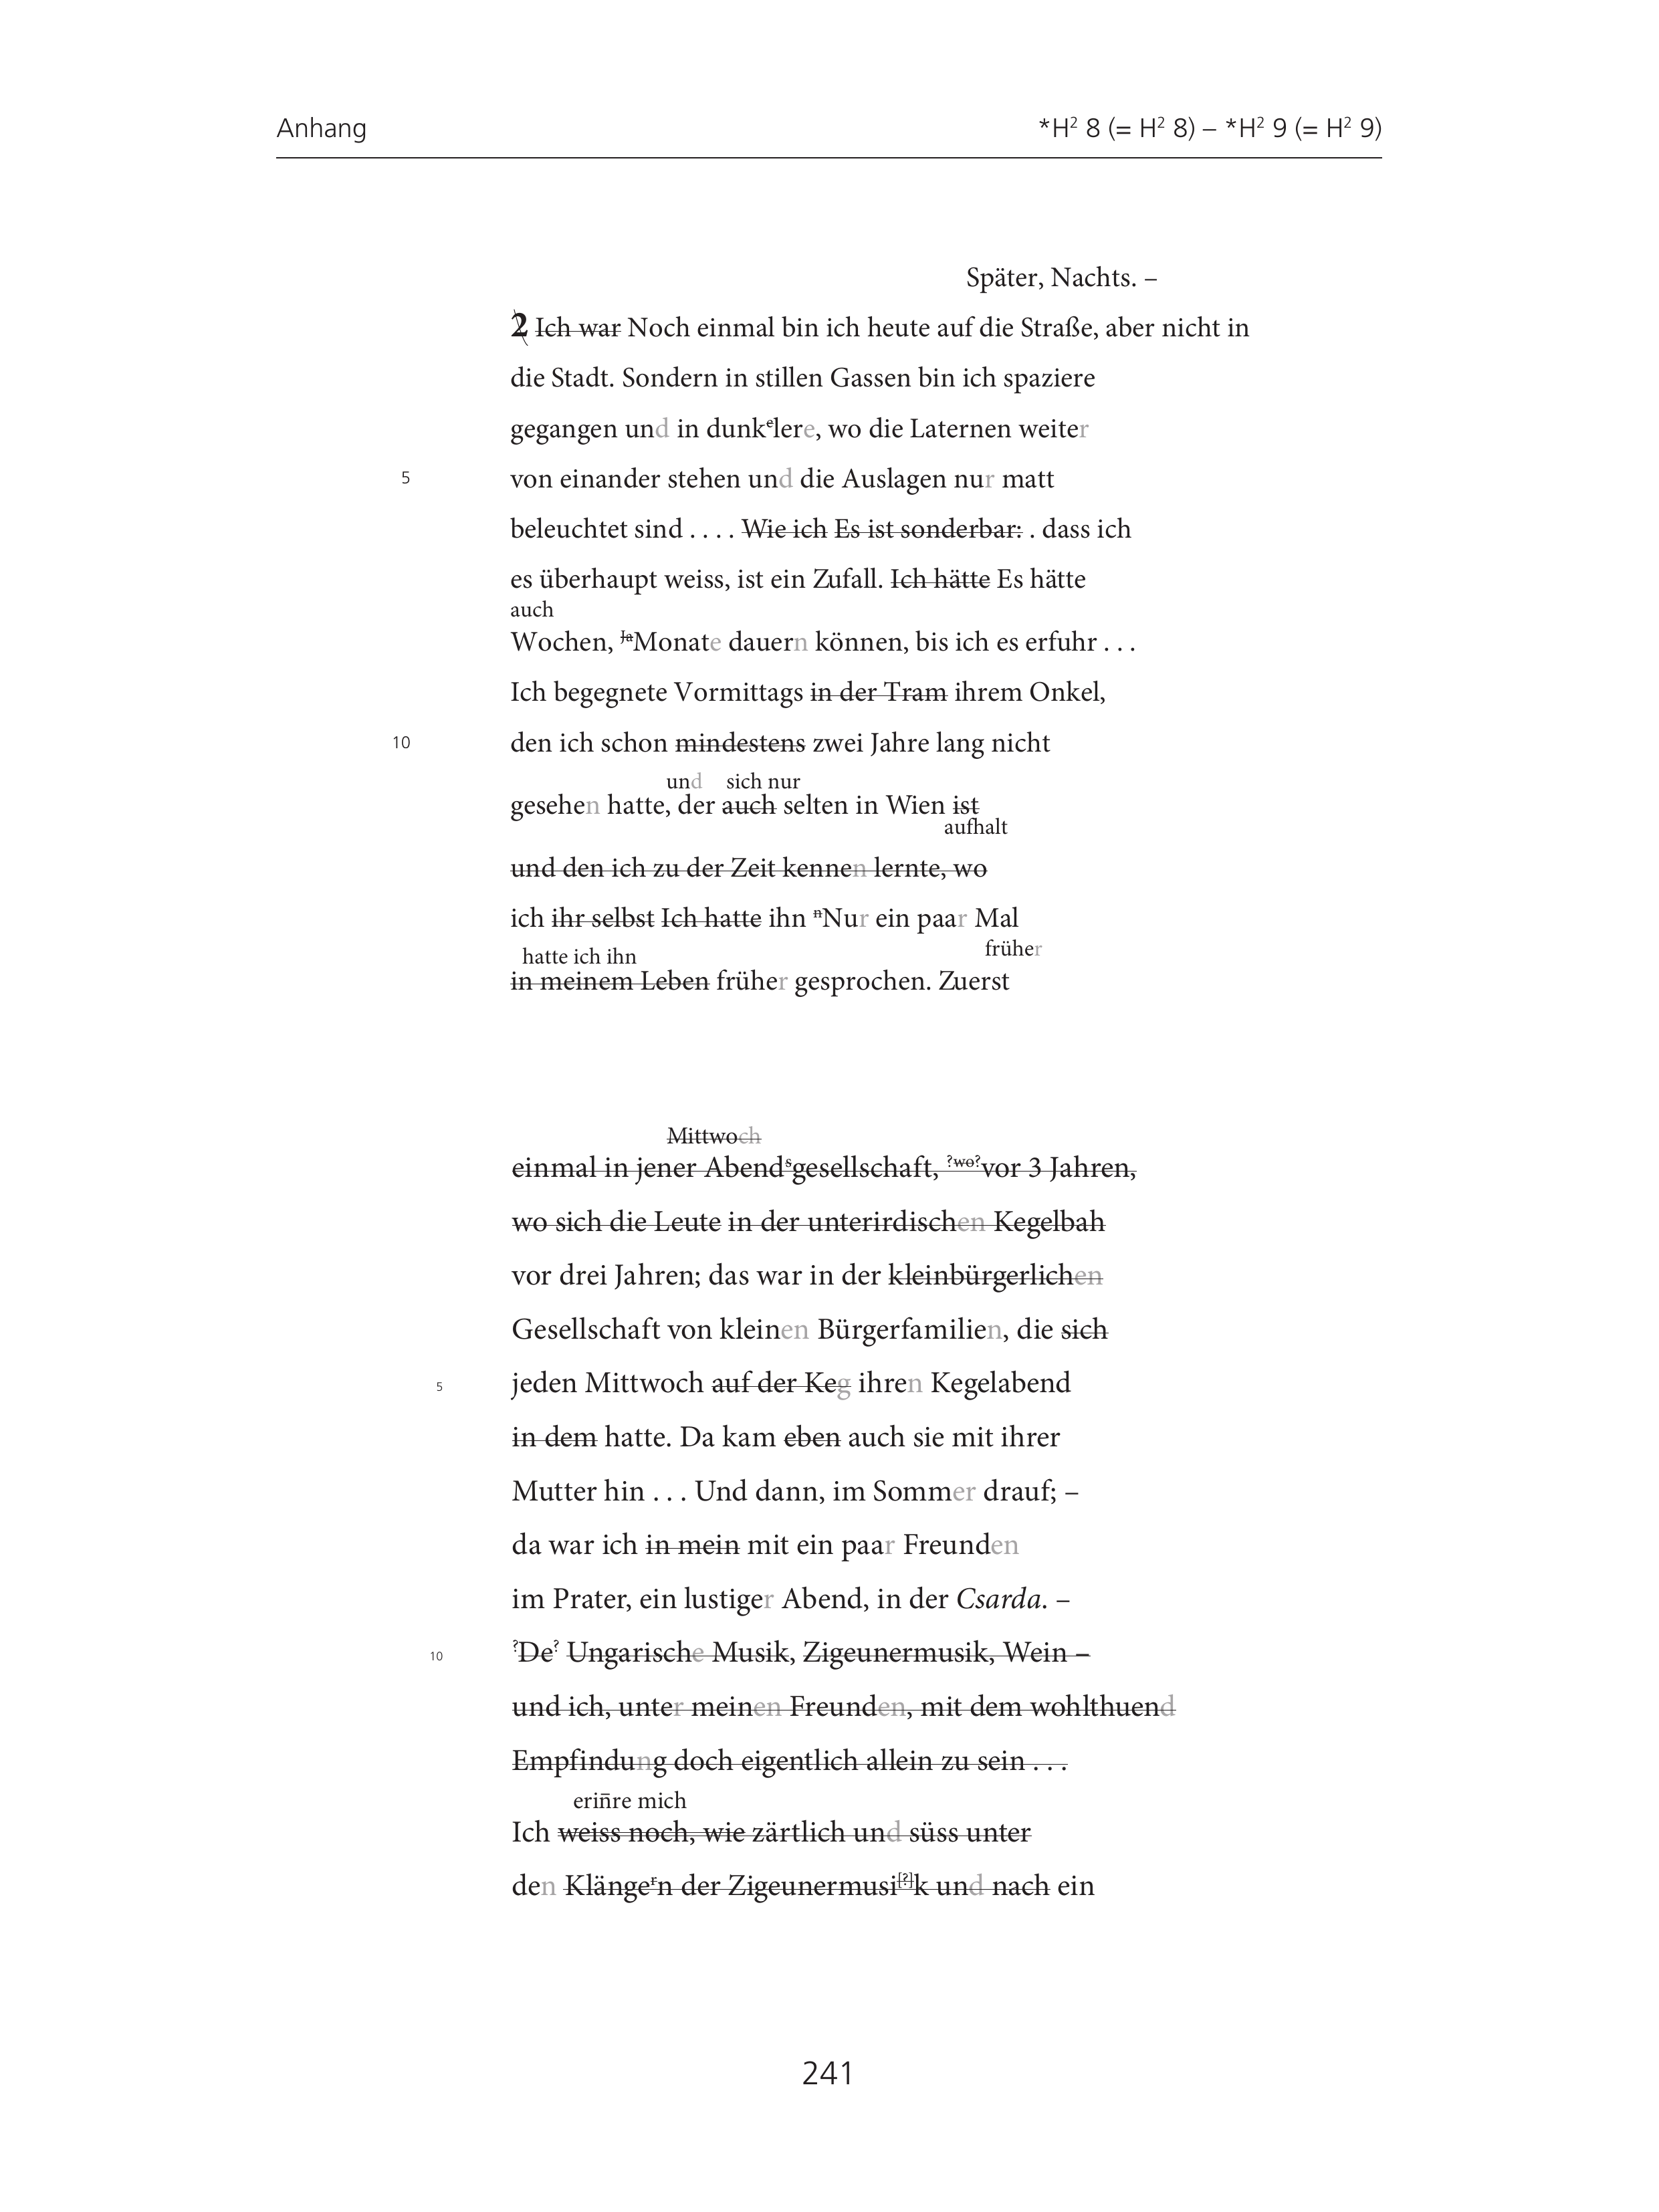 Anhang
*H² 8 (= H² 8) – *H² 9 (= H² 9)
Später, Nachts. –
2 Ich war Noch einmal bin ich heute auf die Straße, aber nicht in
die Stadt. Sondern in stillen Gassen bin ich spaziere
gegangen und in dunkelere, wo die Laternen weiter
5 von einander stehen und die Auslagen nur matt
beleuchtet sind . . . . Wie ich Es ist sonderbar: . dass ich
es überhaupt weiss, ist ein Zufall. Ich hätte Es hätte
auch
Wochen, JaMonate dauern können, bis ich es erfuhr . . .
Ich begegnete Vormittags in der Tram ihrem Onkel,
10 den ich schon mindestens zwei Jahre lang nicht
und sich nur
gesehen hatte, der auch selten in Wien ist
aufhalt
und den ich zu der Zeit kennen lernte, wo
ich ihr selbst Ich hatte ihn nNur ein paar Mal
früher
hatte ich ihn
in meinem Leben früher gesprochen. Zuerst
Mittwoch
einmal in jener Abendsgesellschaft, ?wo?vor 3 Jahren,
wo sich die Leute in der unterirdischen Kegelbah
vor drei Jahren; das war in der kleinbürgerlichen
Gesellschaft von kleinen Bürgerfamilien, die sich
5 jeden Mittwoch auf der Keg ihren Kegelabend
in dem hatte. Da kam eben auch sie mit ihrer
Mutter hin . . . Und dann, im Sommer drauf; –
da war ich in mein mit ein paar Freunden
im Prater, ein lustiger Abend, in der Csarda. –
10 ?De? Ungarische Musik, Zigeunermusik, Wein –
und ich, unter meinen Freunden, mit dem wohlthuend
Empfindung doch eigentlich allein zu sein . . .
erin̄re mich
Ich weiss noch, wie zärtlich und süss unter
den Klängern der Zigeunermusi[?]k und nach ein
241